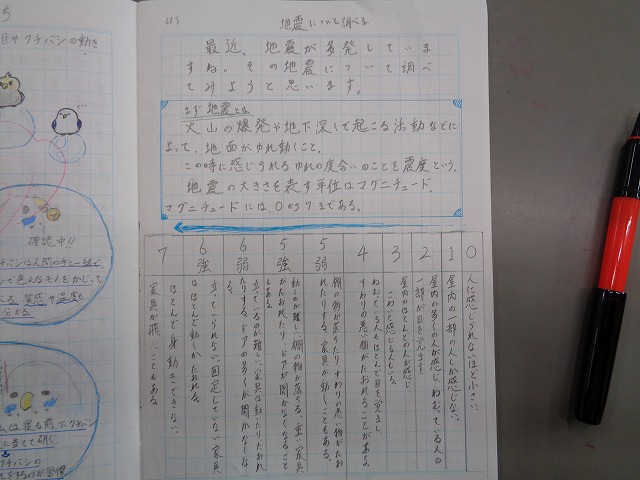 地震について調べる
最近、地震が多発していま
すね。その地震について調べ
てみようと思います。
まず地震とは
火山の爆発や地下深くで起こる活動などに
よって、地面がゆれ動くこと。
この時に感じられるゆれの度合いのことを震度という。
地震の大きさを表す単位はマグニチュード。
マグニチュードには0から7まである。
0
人に感じられないほど小さい。
1
屋内の一部の人しか感じない。
2
屋内の多くの人が感じ、ねむっている人の
一部が目を覚ます。
3
屋内のほとんどの人が感じ
こわいと感じる人もいる。
4
ねむっている人もほとんど目を覚まし、
すわりの悪い物がたおれることがある。
5弱
棚の物が落ちたり、すわりの悪い物がたお
れたりする。家具が動くこともある。
5強
動くのが難しい。棚の物が落ちる。重い家具
がたおれたり、ドアが開かなくなること
もある。
6弱
立っているのが難しい。家具は動いたりたおれ
たりする。ドアの多くが開かなくな
る。
6強
立っていられない。固定していない家具
はほとんど動くかたおれる。
7
ほとんど身動きできない。
家具が飛ぶこともある。
目やクチバシの動き
確認中!!
クチバシは人間の手と一緒で、
色んなモノをかじって
質感や温度を
分かる
は寝る前クチバシ